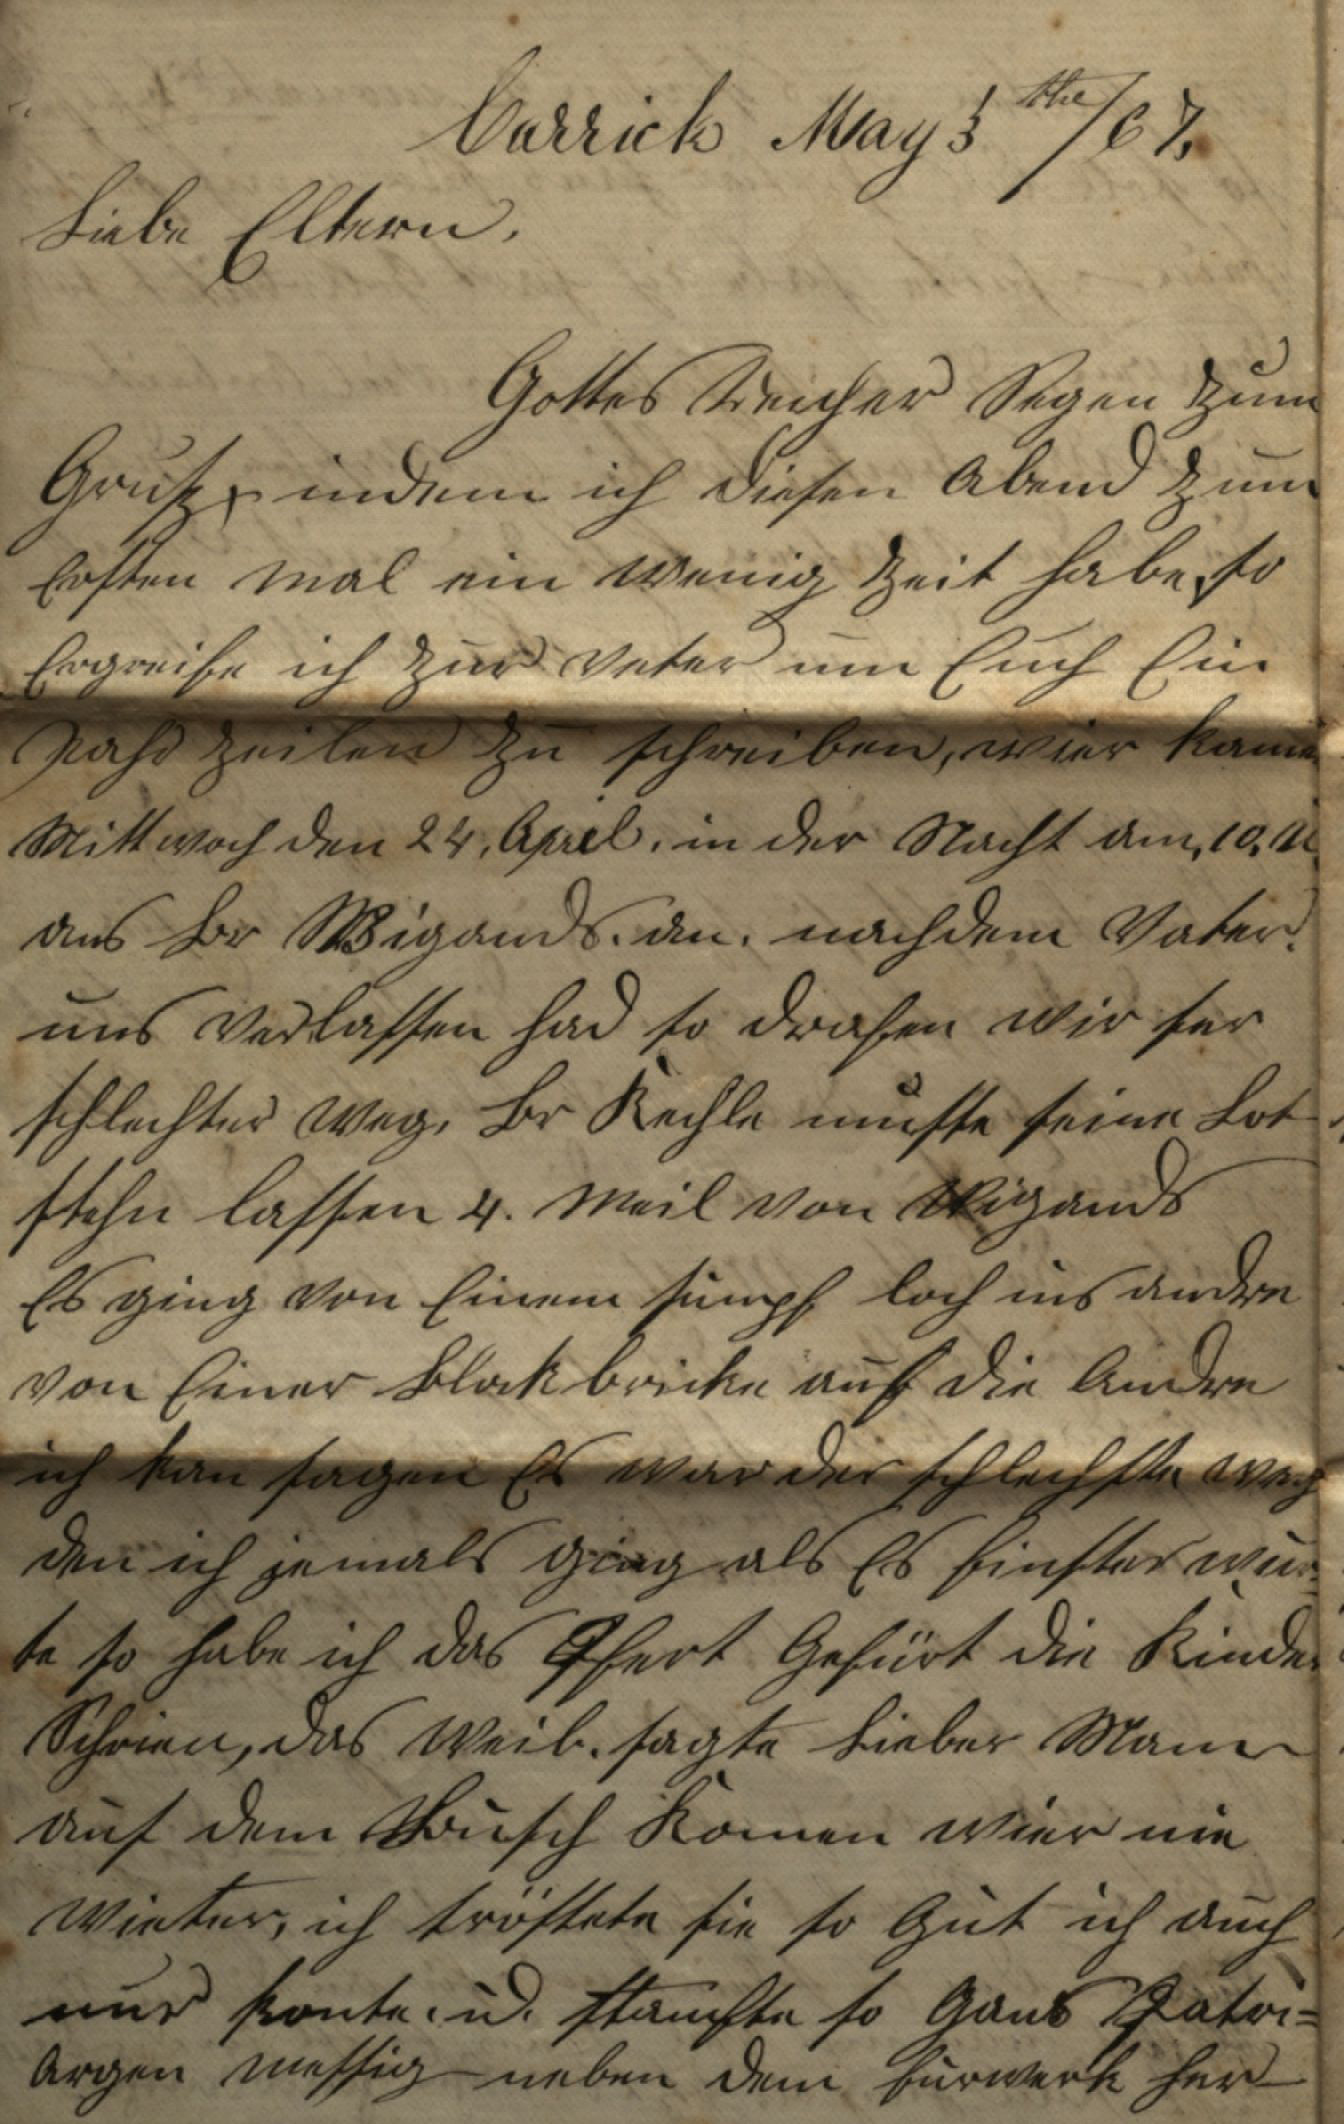 Carrick May 3 the/67.
Liebe Eltern.
Gottes Reicher Segen zum
Gruß, indem ich diesen Abend zum
Ersten mal ein wenig zeit habe, so
Ergreife ich zur Veter um Euch Ein
pahr zeilen zu schreiben, wier kamen
Mittwoch den 24. April. in der Nacht um, 10. U.
ans Br Wigands. an. nachdem Vater.
uns verlassen had so drafen wir ser
schlechter weg. Br Kechle muste seine Lot
stehn lassen 4. Meil von Wigands
Es ging von Einem sumpf loch ins andre
von Einer Blokbricke auf die Andre
ich kan sagen Es war der schlechste weg
den ich jemals ging als Es finster wur-
te so habe ich das Pfert Gefürt die Kinder
Schrien, das Weib. sagte Lieber Mann
auf dem Busch komen wier nie
wieter, ich tröstete sie so Gut ich auch
nur konte. u. stampfte so Gans Patri=
Argen messig neben dem furwerk her